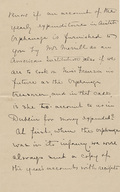 Now if an account of the
yearly expenditures in
Orphanage is furnished to
you by Mr Merrill as an
American institution also if we
are to cook a San Francisco
in future as the Orphanage
treasurer, and in that case
is she to account to us in
Dublin for money expended?
At first, when the orphanage
was in its infancy we were
always sent a copy of
the years accounts with receipts